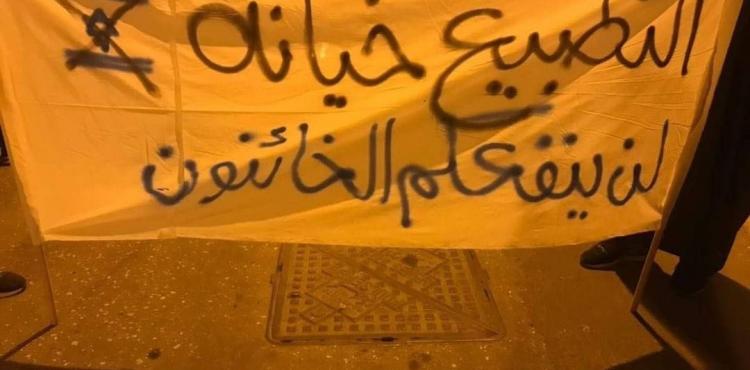 التطبيع خيانة
لن ينفعكم الخائنون